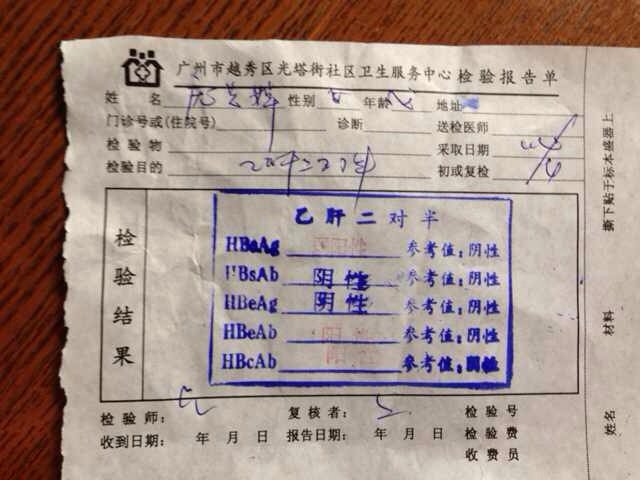 广州市越秀区光塔街社区卫生服务中心检验报告单
姓 名 性别 年龄 地址
门诊号或(住院号) 诊断 送检医师
检 验 物 采取日期
检验目的 初或复检
检验结果
乙肝二对半
HBsAg 阳性 参考值:阴性
HBsAb 阴性 参考值:阴性
HBeAg 阴性 参考值:阴性
HBeAb 阳性 参考值:阴性
HBcAb 阳性 参考值:阴性
检 验 师: 复 核 者: 检 验 号
收到日期: 年 月 日 报告日期: 年 月 日 检 验 费
收 费 员
撕下贴于标本盛器上
材料
姓名